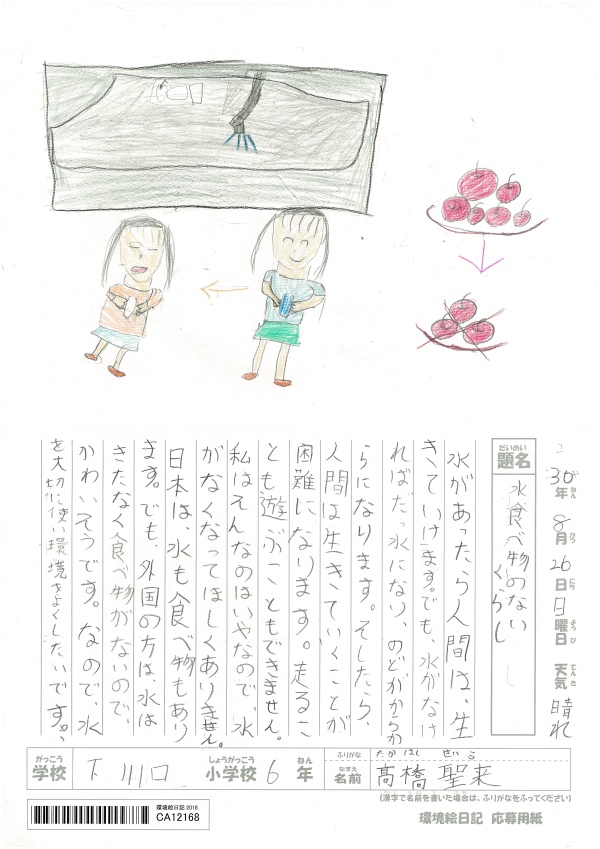 30年 8月 26日 日曜日 天気 晴れ
ねん がつ にち ようび てんき
だいめい
題名 水食べ物のない
くらし
水があったら人間は、生
きていけます。でも、水がなけ
ればだっ水になり、のどがからか
らになります。そしたら、
人間は生きていくことが
困難になります。走るこ
とも遊ぶこともできません。
私はそんなのはいやなので、水
がなくなってほしくありません。
日本は、水も食べ物もあり
ます。でも、外国の方は、水は
きたなく食べ物がないので、
かわいそうです。なので、水
を大切に使い環境をよくしたいです。
がっこう しょうがっこう ねん ふりがな たかはし せいら
学校 下川口 小学校 6年 なまえ 名前 髙橋 聖来
(漢字で名前を書いた場合は、ふりがなをふってください)
環境絵日記 2018
CA12168
環境絵日記 応募用紙